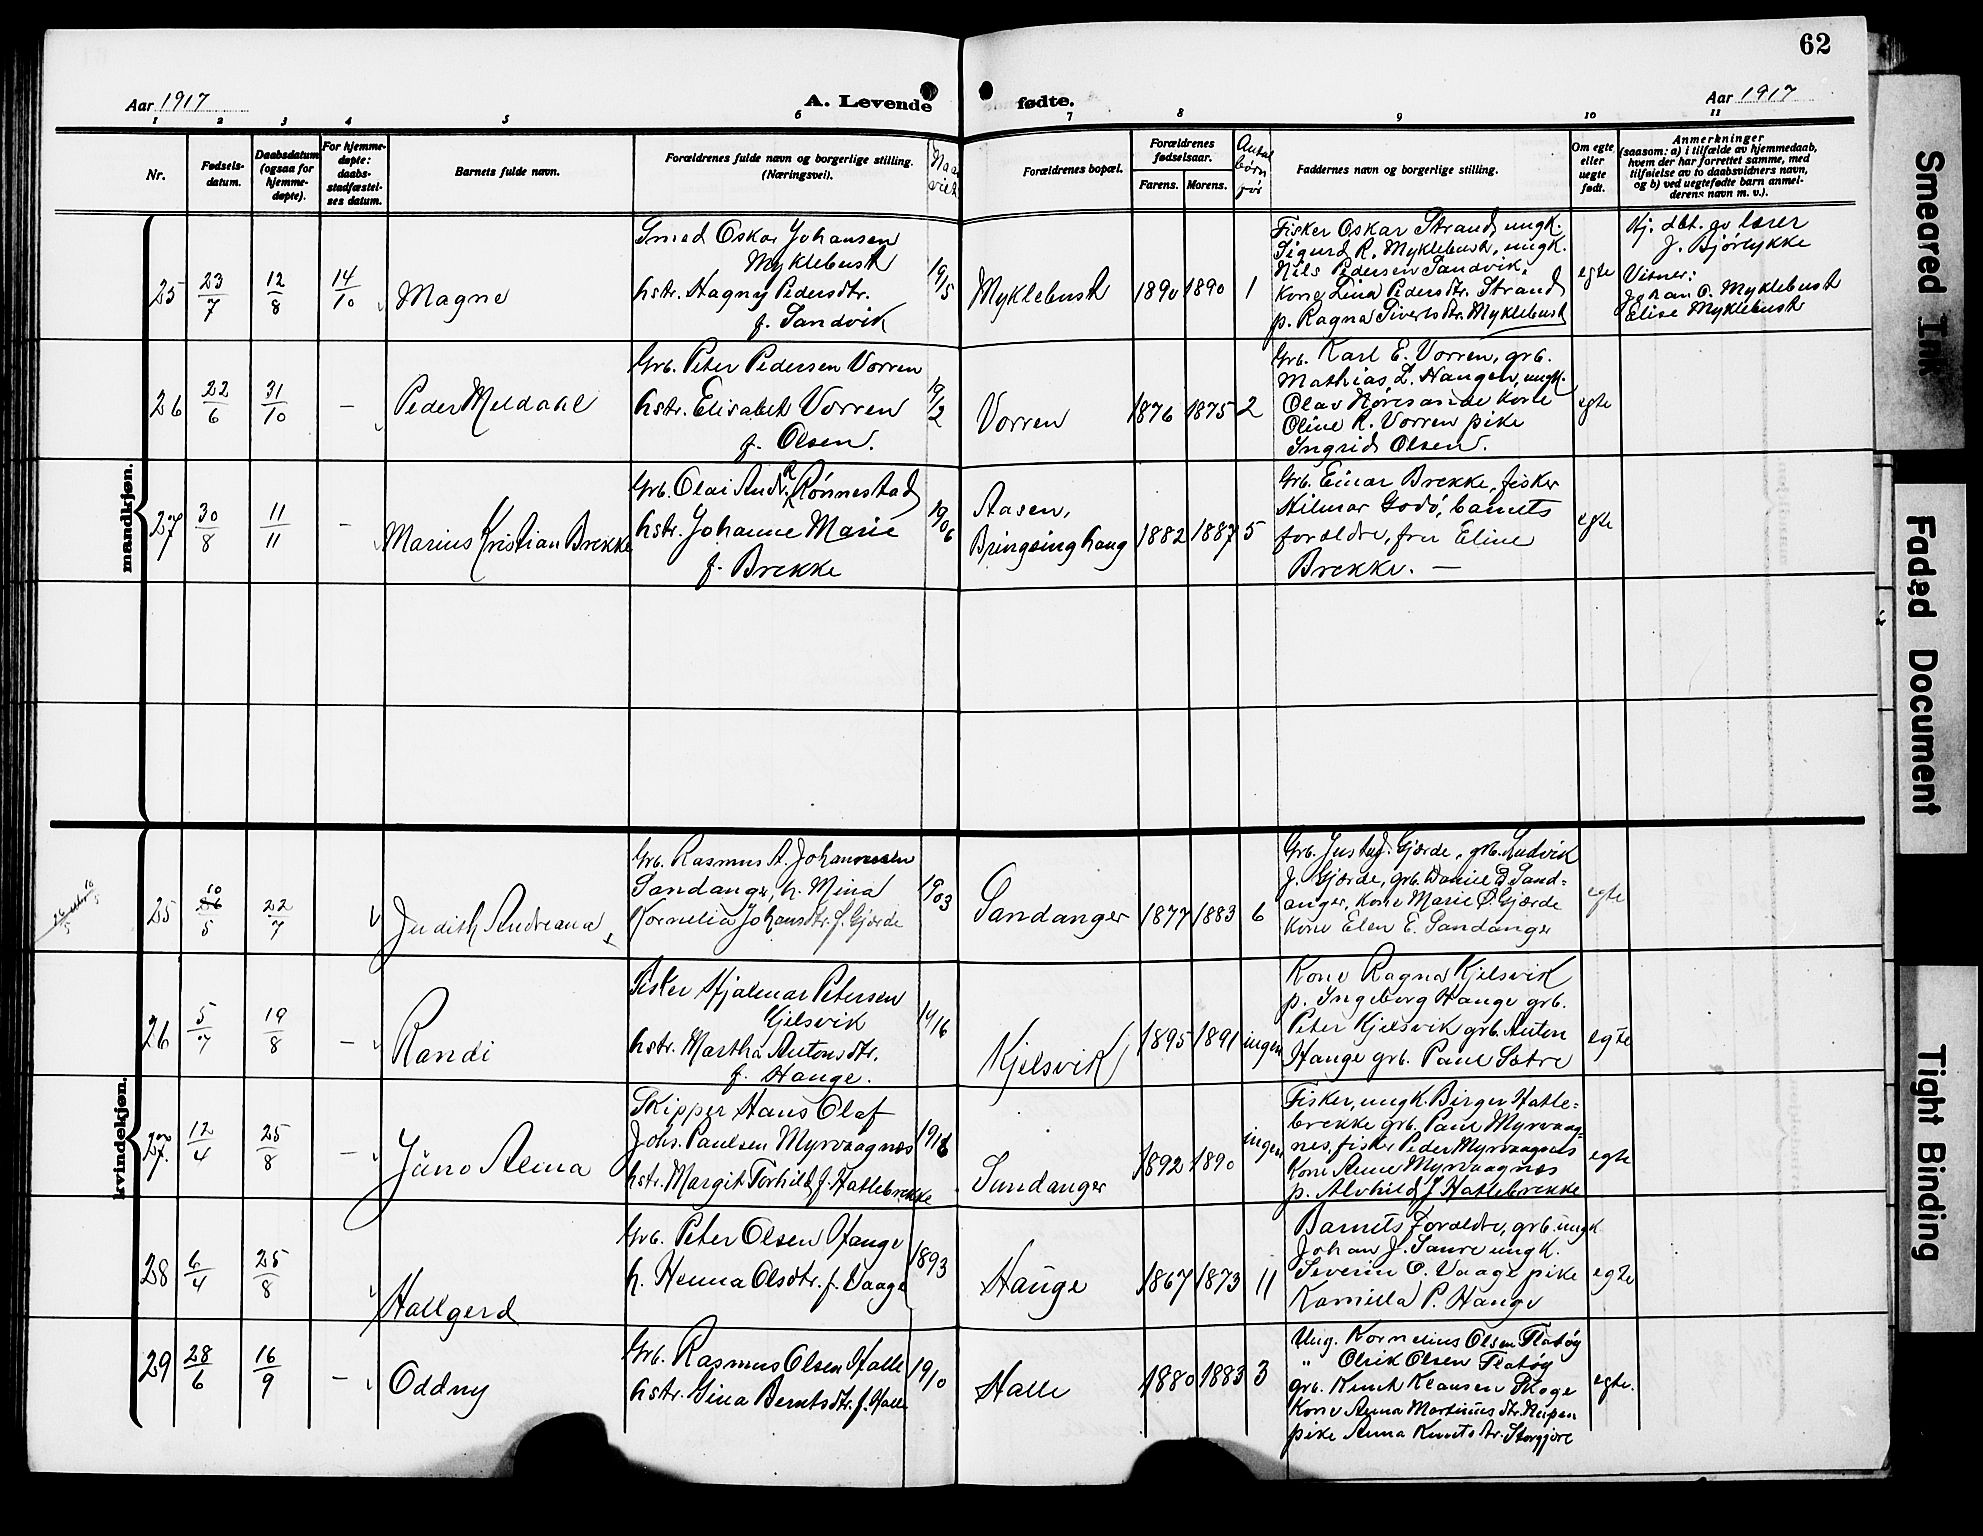 62
Aar 1917
A. Levende fødte.
Aar 1917
1 2 3 4 5 6 7 8 9 10 11
Nr.
Fødsels-
datum.
Daabsdatum
(ogsaa for
hjemme-
døpte).
For hjemme-
døpte:
daabs-
stadfæstel-
ses datum.
Barnets fulde navn.
Forældrenes fulde navn og borgerlige stilling.
(Næringsvei).
Naar
viet
Forældrenes bopæl.
Forældrenes
fødselsaar.
Farens. Morens.
Antal
børn
før
Faddernes navn og borgerlige stilling.
Om egte
eller
uegte
født.
Anmerkninger
(saasom: a) i tilfælde av hjemmedaab,
hvem der har forrettet samme, med
tilføielse av to daabsvidners navn,
og b) ved uegtefødte barn anmel-
derens navn m. v.).
mandkjøn.
25 23/7 12/8 14/10 Magne
Smed Oskar Johansen
Myklebust
hstr. Hagny Pedersdtr.
f. Sandvik
19/15
Myklebust 1890 1890 1
Fisker Oskar Strand, ungk.
Sigurd R. Myklebust, ungk.
Nils Pedersen Sandvik,
kone Lina Pedersdtr. Strand
p. Ragna Sivertsdtr. Myklebust
egte
Hj. dbt. av lærer
J. Bjørlykke
Vitner:
Johan O. Myklebust
Elise Myklebust
26 22/6 31/10 — Peder Meldahl
Grb. Peter Pedersen Vorren
hstr. Elisabet Vorren
f. Olsen.
19/12
Vorren 1876 1875 2
Grb. Karl E. Vorren, grb.
Mathias L. Haugen, ungk.
Olav Nøresande kone
Oline R. Vorren pike
Ingrid Olsen.
egte
27 30/8 11/11 — Marius Kristian Brekke
Grb. Olai Andr. R. Rønnestad
hstr. Johanne Marie
f. Brekke
19/06
Aasen,
Bringsinghaug 1882 1887 5
Grb. Einar Brekke, fisker
Hilmar Godø, barnets
forældre, fru Eline
Brekke. —
egte
kvindekjøn.
25 10/5 22/7 Judith Andreana
Grb. Rasmus A. Johannessen
Sandanger, h. Mina
Kornelia Johansdtr. f. Gjærde
1903
Sandanger 1877 1883 6
Grb. Gustav J. Gjærde, grb. Ludvik
J. Gjærde, grb. Daniel B. Sand=
anger, kone Marie O. Gjærde
kone Elen E. Sandanger
egte
26 5/7 19/8 — Randi
Fisker Hjalmar Petersen
Kjelsvik
hstr. Martha Antonsdtr.
f. Hauge.
1916
Kjelsvik 1895 1891 ingen
Kone Ragna Kjelsvik
p. Ingeborg Hauge grb.
Peter Kjelsvik grb. Anton
Hauge grb. Paul Sætre
egte
27. 12/4 25/8 — Juno Alma
Skipper Hans Olaf
Johs. Paulsen Myrvaagnes
hstr. Margit Torhild f. Hatlebrekke
1916
Sundanger 1892 1890 ingen
Fisker, ungk. Birger Hatle=
brekke grb. Paul Myrvaag=
nes, fisker Peder Myrvaagnes
Kone Anne Myrvaagnes
p. Alvhild J. Hatlebrekke
egte
28 6/4 25/8 Hallgerd
Grb. Peter Olsen Hauge
h. Henna Olsdtr. f. Vaage
1893
Hauge 1867 1873 11
Barnets Forældre, grb. ungk.
Johan J. Saure ungk.
Severin O. Vaage pike
Kamilla P. Hauge
egte
29 28/6 16/9 — Oddny
Grb. Rasmus Olsen Halle
hstr. Gina Berntsdtr. f. Halle
1910
Halle 1880 1883 3
Ung. Kornelius Olsen Flatøy
" Olrik Olsen Flatøy
grb. Knut Klausen Skoge
Kone Anna Martinusdtr. Neipen
pike Anna Knutsdtr. Storgjøre
egte.
Smeared Ink
Faded Document
Tight Binding